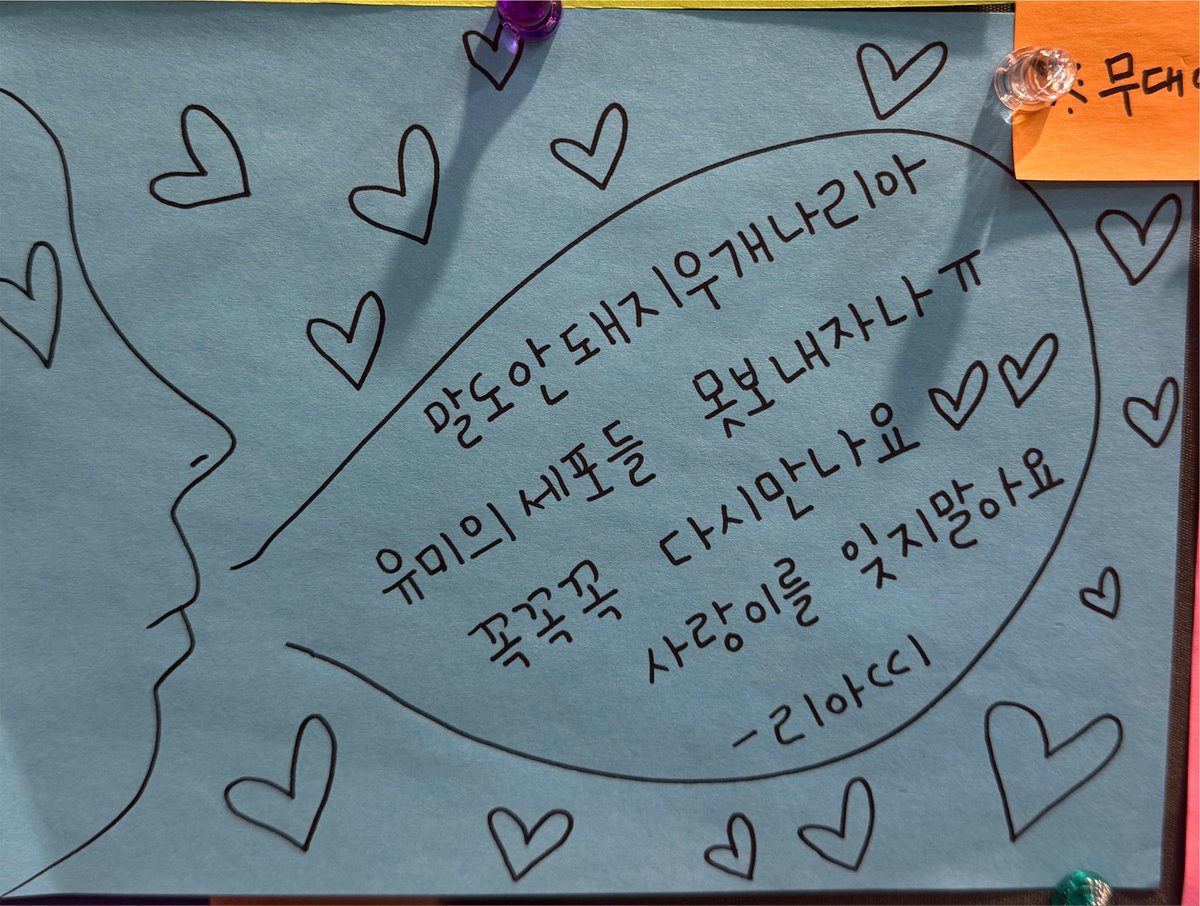 말도안돼지우개나리아
유미의세포들 못보내자나 ㅠ
꼭꼭꼭 다시만나요 ♡♡
사랑이를 잊지말아요
-리아ㄸㅣ
※무대